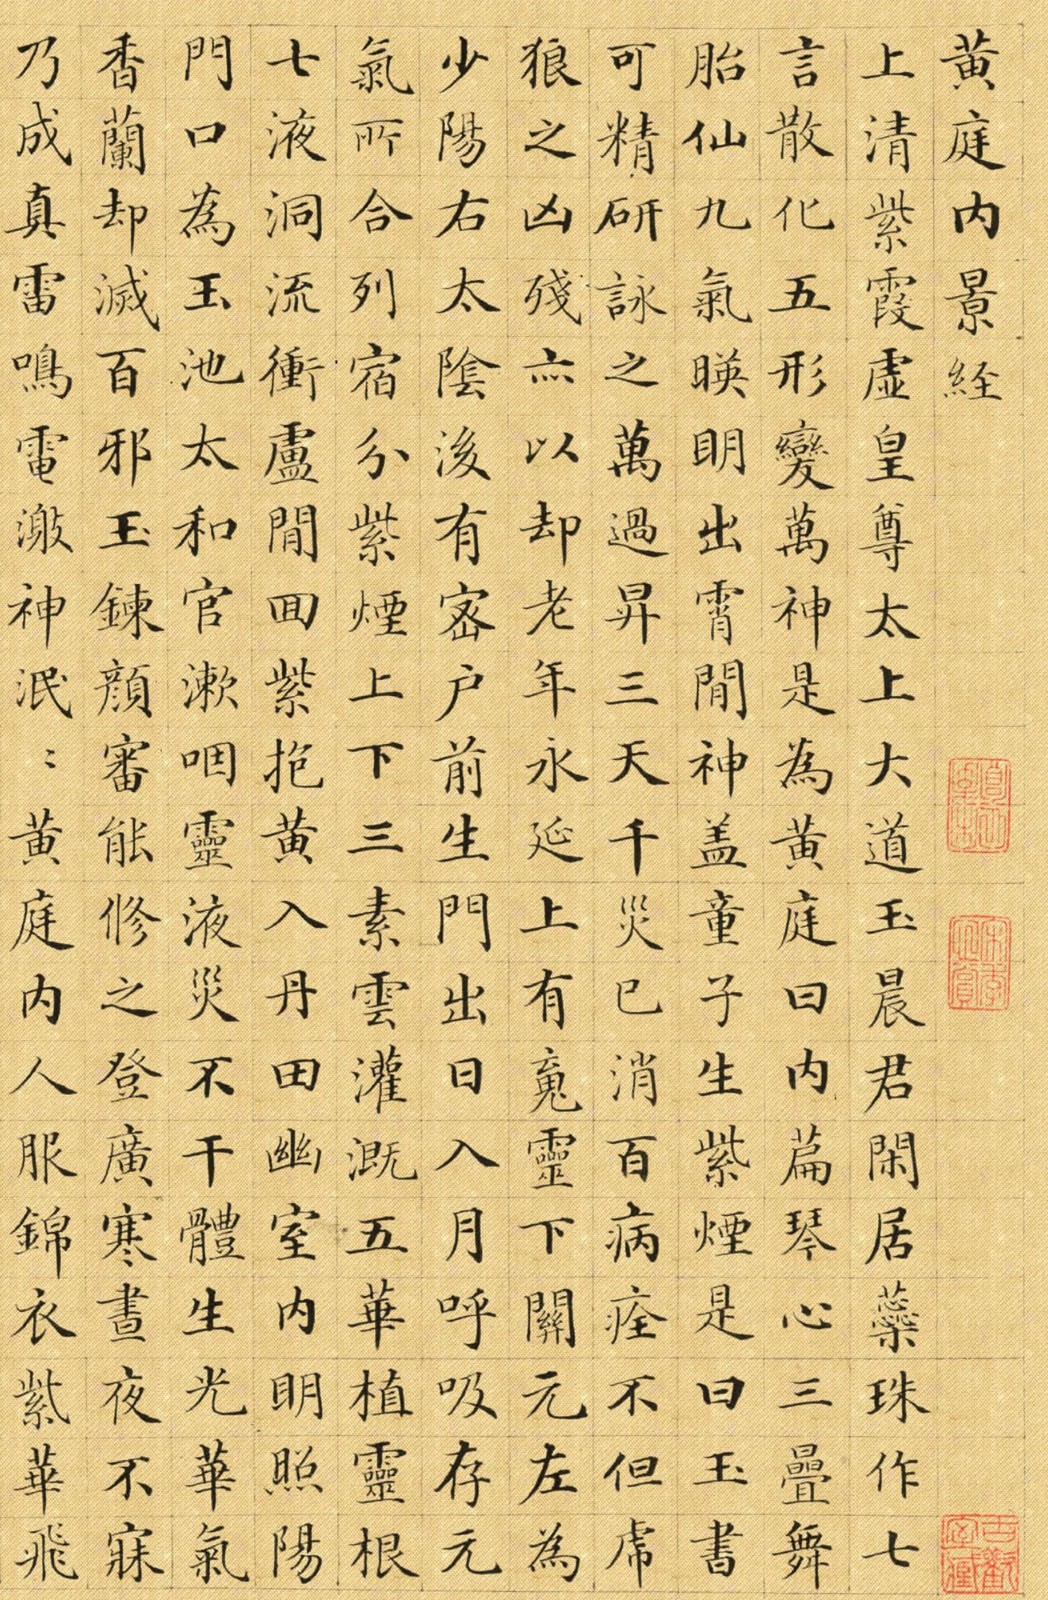 黄庭内景経
上清紫霞虛皇尊太上大道玉晨君閑居蘂珠作七
言散化五形變萬神是為黄庭曰内萹琴心三疊舞
胎仙九氣暎明出霄間神盖童子生紫煙是曰玉書
可精研詠之萬過昇三天千災已消百病痊不但虎
狼之凶殘亦以却老年永延上有䰟靈下關元左為
少陽右太陰後有密户前生門出日入月呼吸存元
氣所合列宿分紫煙上下三素雲灌溉五華植靈根
七液洞流衝盧間回紫抱黄入丹田幽室内明照陽
門口為玉池太和官漱咽靈液災不干體生光華氣
香蘭却滅百邪玉鍊顔審能修之登廣寒晝夜不寐
乃成真雷鳴電激神泯〻黄庭内人服錦衣紫華飛